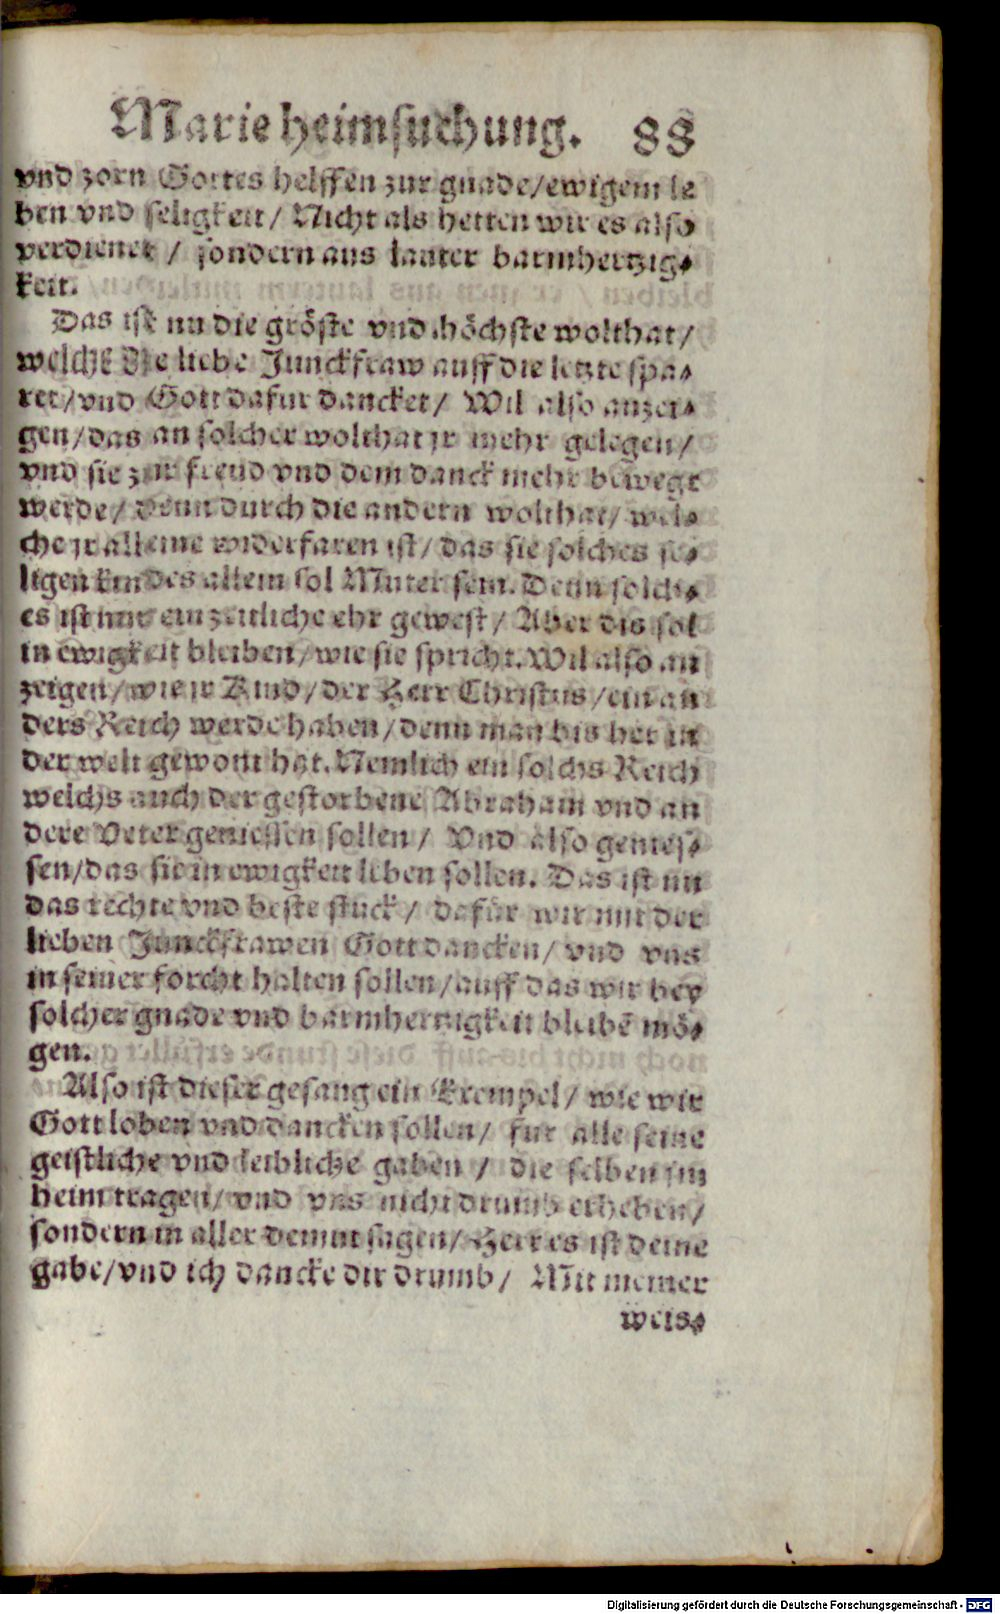 Marie heimsuchung. 88
vnd zorn Gottes helffen zur gnade/ewigem le
ben vnd seligkeit/ Nicht als hetten wir es also
verdienet / sondern aus lauter barmhertzig⸗
keit.
Das ist nu die gröste vnd höchste wolthat/
welche die liebe Junckfraw auff die letzte spa⸗
ret/vnd Gott dafur dancket/ Wil also anzei⸗
gen/das an solcher wolthat jr mehr gelegen/
vnd sie zur freud vnd dem danck mehr bewegt
werde/ denn durch die andern wolthat/ wel⸗
che jr alleine widerfaren ist/ das sie solches se⸗
ligen kindes allein sol Muter sein. Denn solch⸗
es ist nur ein zeitliche ehr gewest/ Aber dis sol
in ewigkeit bleiben/wie sie spricht. Wil also an
zeigen/wie jr Kind/der Herr Christus/ein an
ders Reich werde haben/denn man bis her in
der welt gewont hat. Nemlich ein solchs Reich
welchs auch der gestorbene Abraham vnd an
dere Veter geniessen sollen/ Vnd also genies⸗
sen/das sie in ewigkeit leben sollen. Das ist nu
das rechte vnd beste stück/ dafür wir mit der
lieben Junckfrawen Gott dancken/ vnd vns
in seiner forcht halten sollen/auff das wir bey
solcher gnade vnd barmhertzigkeit bleibē mö⸗
gen.
Also ist dieser gesang ein Exempel/ wie wir
Gott loben vnd dancken sollen/ fur alle seine
geistliche vnd leibliche gaben / die selben jm
heim tragen/ vnd vns nicht drumb erheben/
sondern in aller demut sagen/ Herr es ist deine
gabe/vnd ich dancke dir drumb/ Mit meiner
weis⸗
Digitalisierung gefördert durch die Deutsche Forschungsgemeinschaft - DFG